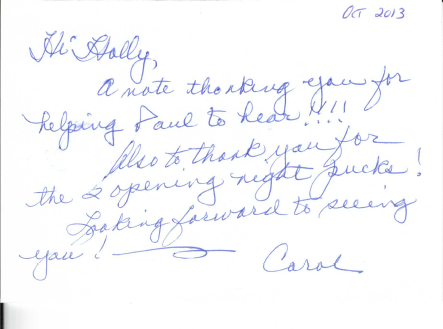 Oct 2013
Hi Holly,
A note thanking you for
helping Paul to hear!!!!
Also to thank you for
the 2 opening night pucks!
Looking forward to seeing
you!
Carol